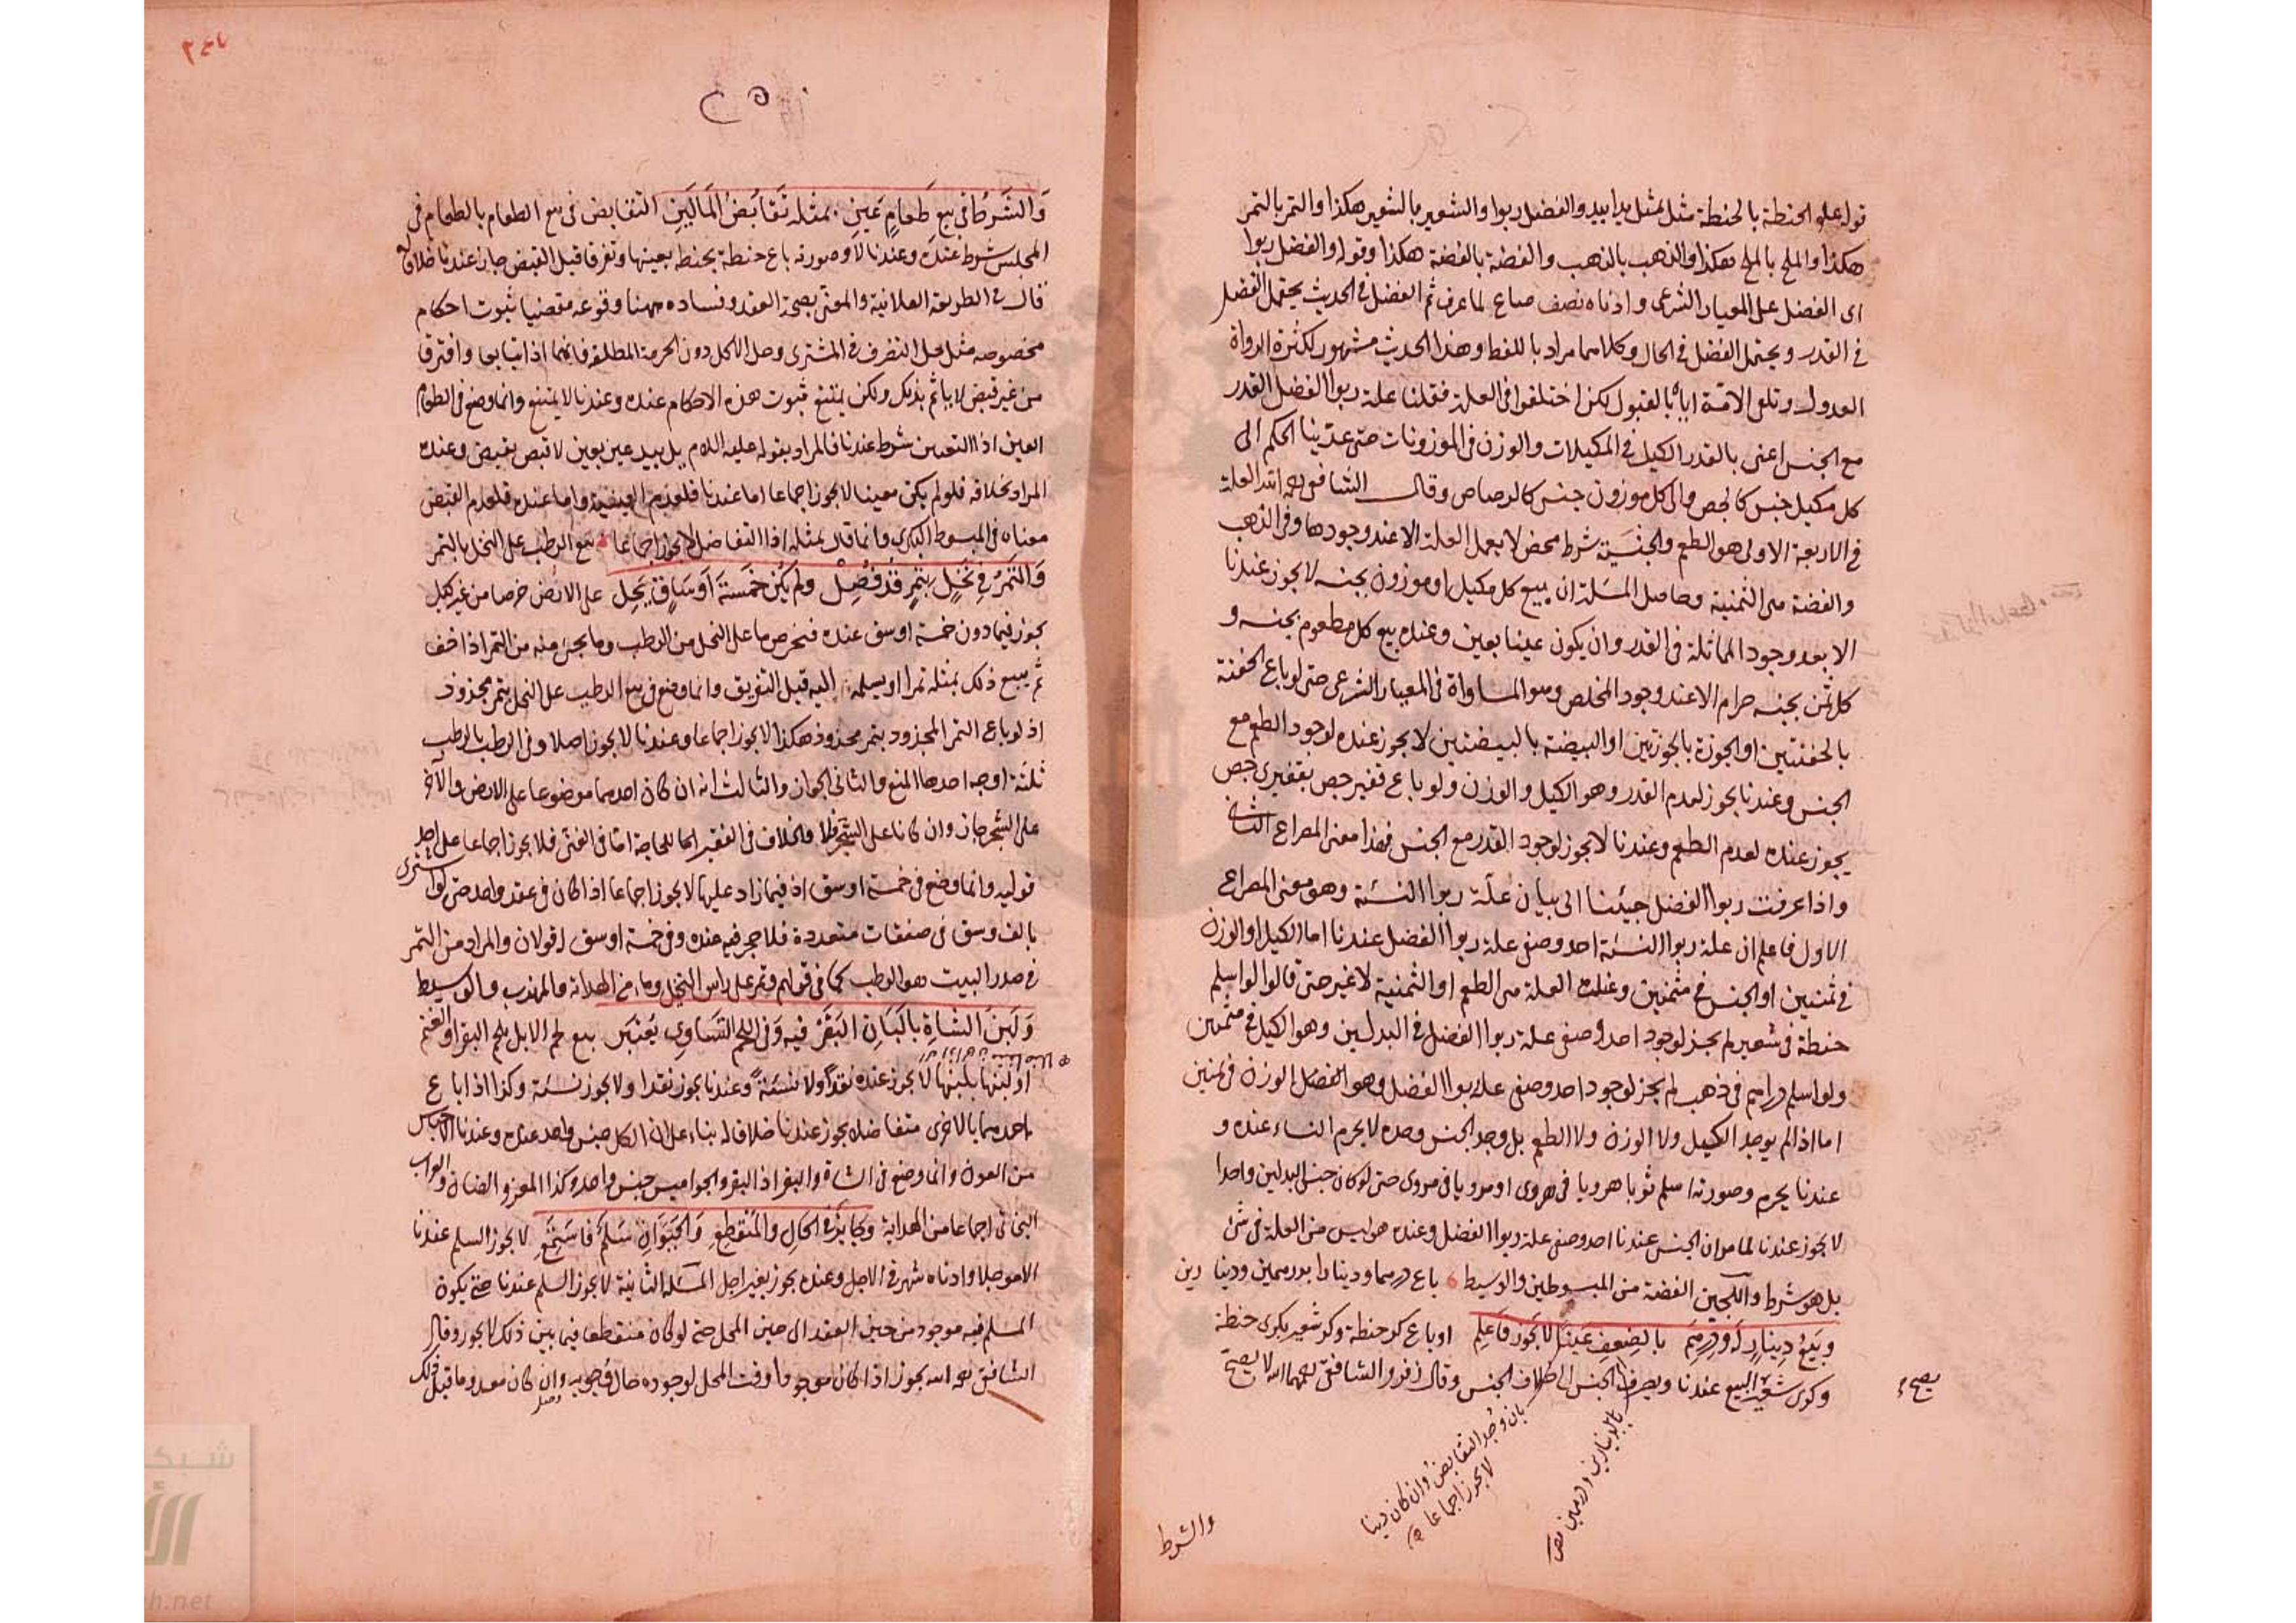 قوله عليه الحنطة بالحنطة مثل بمثل يدا بيد والفضل ربوا والشعير بالشعير هكذا والتمر بالتمر
هكذا والملح بالملح هكذا والذهب بالذهب والفضة بالفضة هكذا وقوله والفضل ربوا
اى الفضل على المعيار الشرعى وادناه نصف صاع لما عرف ثم الفضل فى الحديث يحتمل الفضل
فى القدر ويحتمل الفضل فى الحال وكلاهما مراد باللفظ وهذا الحديث مشهور لكثرة الرواة
العدول وتلقى الامة اياه بالقبول لكن اختلفوا فى العلة فقلنا علة ربوا الفضل القدر
مع الجنس اعنى بالقدر الكيل فى المكيلات والوزن فى الموزونات حتى عدينا الحكم الى
كل مكيل جنس كالجص والى كل موزون جنس كالرصاص وقال الشافعى رحمه الله العلة
فى الاربعة الاولى هو الطعم والجنسية شرط محض لا يعمل العلة الا عند وجودها وفى الذهب
والفضة هى الثمنية وحاصل المسئلة ان بيع كل مكيل او موزون بجنسه لا يجوز عندنا
الا بعد وجود المماثلة فى القدر وان يكون عينا بعين وعنده بيع كل مطعوم بجنسه و
كل ثمن بجنسه حرام الا عند وجود المخلص وهو المساواة فى المعيار الشرعى حتى لو باع الحفنة
بالحفنتين او الجوزة بالجوزتين او البيضة بالبيضتين لا يجوز عنده لوجود الطعم مع
الجنس وعندنا يجوز لعدم القدر وهو الكيل والوزن ولو باع قفيز جص بقفيزى جص
يجوز عنده لعدم الطعم وعندنا لا يجوز لوجود القدر مع الجنس فهذا معنى المصراع الثانى
واذا عرفت ربوا الفضل جيئنا الى بيان علة ربوا النسئة وهو معنى المصراع
الاول فاعلم ان علة ربوا النسئة احد وصفى علة ربوا الفضل عندنا اما الكيل او الوزن
فى ثمنين او الجنس فى مثمنين وعنده العلة هى الطعم او الثمنية لا غير حتى قالوا لو اسلم
حنطة فى شعير لم يجز لوجود احد وصفى علة ربوا الفضل فى البدلين وهو الكيل فى مثمنين
ولو اسلم دراهم فى ذهب لم يجز لوجود احد وصفى علة ربوا الفضل وهو الوزن فى ثمنين
اما اذا لم يوجد الكيل ولا الوزن ولا الطعم بل وجد الجنس وحده لا يحرم النساء عنده و
عندنا يحرم وصورته اسلم ثوبا هرويا فى هروى او مرويا فى مروى حتى لو كان جنس البدلين واحدا
لا يجوز عندنا لما مر ان الجنس عندنا احد وصفى علة ربوا الفضل وعنده هو ليس من العلة فى شئ
بل هو شرط واللجين الفضة من المبسوطين والوسيط باع درهما ودينارا بدرهمين ودينارين
وبيع دينار ودرهم بالضعف عينا لا يجوز فاعلم او باع كر حنطة وكر شعير بكرى حنطة
وكرى شعير البيع عندنا ويصرف الجنس الى خلاف الجنس وقال زفر والشافعى رحمهما الله لا يصح
يصح
بالدينارين ودرهمين
بان وجد التقابض وان كان دينا
لا يجوز اجماعا
والشرط
والشرط فى بيع طعام عين بمثله تقابض المالين التقابض فى بيع الطعام بالطعام فى
المجلس شرط عنده وعندنا لا وصورته باع حنطة بحنطة بعينها وتفرقا قبل القبض جاز عندنا خلافا له
قال فى الطريقة العلائية والمعنى بصحة العقد وفساده ههنا وقوعه مقتضيا ثبوت احكام
مخصوصة مثل حل التصرف فى المشترى وحل الاكل دون الحرمة المطلقة فانهما اذا تبايعا وافترقا
من غير قبض لا ياثم بذلك ولكن يمتنع ثبوت هذه الاحكام عنده وعندنا لا يمتنع وانما وضع فى الطعام
العين اذ التعيين شرط عندنا فالمراد بقوله عليه السلام يد بيد عين بعين لا قبض بقبض وعنده
المراد بخلافه فلو لم يكن معينا لا يجوز اجماعا اما عندنا فلعدم العينية واما عنده فلعدم القبض
معناه فى المبسوط البكرى وانما قال بمثله اذ التفاضل لا يجوز اجماعا بيع الرطب على النخل بالتمر
والتمر فى نخل بتمر قد فصل ولم يكن خمسة اوساق يحل على الارض خرصا من غير كيل
يجوز فيما دون خمسة اوسق عنده فيخرص ما على النخل من الرطب وما يجئ منه من التمر اذا خف
ثم يبيع ذلك بمثله تمرا ويسلمه اليه قبل التفريق وانما وضع فى بيع الرطب على النخل بتمر مجذوذ
اذ لو باع التمر المجذوذ بتمر مجذوذ هكذا لا يجوز اجماعا وعندنا لا يجوز اصلا وفى الرطب بالرطب
ثلثة اوجه احدها المنع والثانى الجواز والثالث انه ان كان احدهما موضوعا على الارض والآخر
على الشجر جاز وان كانا على الشجر فلا والخلاف فى الفقير للحاجة اما فى الغنى فلا يجوز اجماعا على احد
قوليه وانما وضع فى خمسة اوسق اذ فيما زاد عليها لا يجوز اجماعا اذا كان فى عقد واحد حتى لو اشترى
بالف وسق فى صفقات متعددة فلا حجر فيه عنده وفى خمسة اوسق له قولان والمراد من التمر
فى صدر البيت هو الرطب كما فى قولهم وتمر على راس النخل وماء من الهداية والمهذب والوسيط
ولبن الشاة بالبان البقر فيه وفى اللحم التساوى يعتبر بيع لحم الابل بلحم البقر او الغنم
او لبنها بلبنها لا يجوز عنده نقدا ولا نسئة وعندنا يجوز نقدا ولا يجوز نسئة وكذا اذا باع
احدهما بالاخرى متفاضلا يجوز عندنا خلافا له بناء على ان الكل جنس واحد عنده وعندنا اجناس
من العون وانما وضع فى الشاة والبقر اذ البقر والجواميس جنس واحد وكذا المعز والضان والعراب
البخاتى اجماعا من الهداية وكا بذى الحال والمنقطع والحيوان سلم فاستمع لا يجوز السلم عندنا
الا موجلا وادناه شهر فى الاصل وعنده يجوز بغير اجل المسئلة الثانية لا يجوز السلم عندنا حتى يكون
المسلم فيه موجودا من حين العقد الى حين المحل حتى لو كان منقطعا فيما بين ذلك لا يجوز وقال
الشافعى رحمه الله يجوز اذا كان موجودا وقت المحل لوجوده حال وجوبه وان كان معدوما قبل ذلك